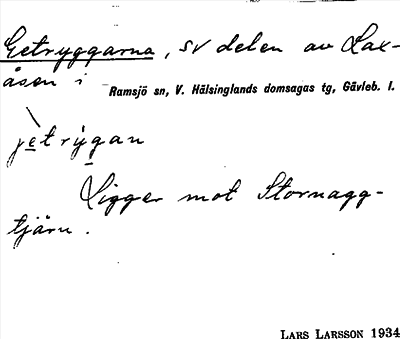 Getryggarna, SV delen av Lax-
åsen i Ramsjö sn, V. Hälsinglands domsagas tg, Gävleb. l.
jetrỳgan
Ligger mot Stornagg-
tjärn.
LARS LARSSON 1934